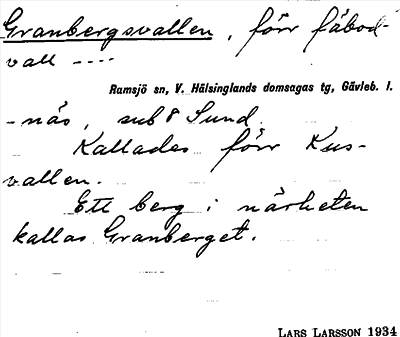 Granbergsvallen, förr fäbod-
vall ----
Ramsjö sn, V. Hälsinglands domsagas tg, Gävleb. l.
-näs, sub 8 Sund.
Kallades förr Kus-
vallen.
Ett berg i närheten
kallas Granberget.
LARS LARSSON 1934